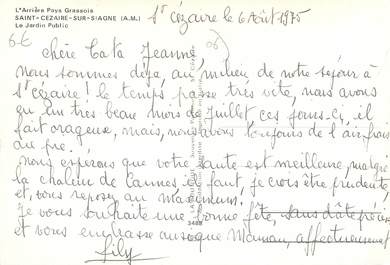 L'Arrière Pays Grassois
SAINT-CÉZAIRE-SUR-SIAGNE (A.M.)
Le Jardin Public
St Cézaire le 6 Août 1975
6€
06
Chère Tata Jeanne,
nous sommes déjà, au milieu de notre séjour à
St Cézaire! le temps passe très vite, nous avons
eu un très beau mois de Juillet, ces jours-ci, il
fait orageux, mais, nous avons toujours de l'air frais
au pré!
nous espérons que votre santé est meilleure, malgré
la chaleur de Cannes. Il faut, je crois être prudente
et, vous reposer au maximum!
Je vous souhaite une bonne fête, sans date précise
et vous embrasse ainsi que Maman, affectueusement
Lily